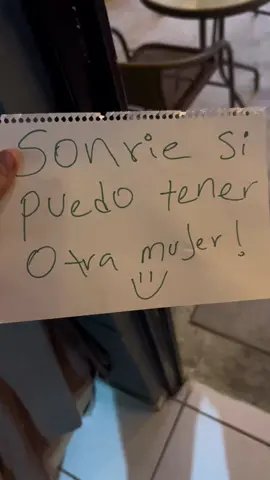 Sonrie si
puedo tener
Otra mujer!